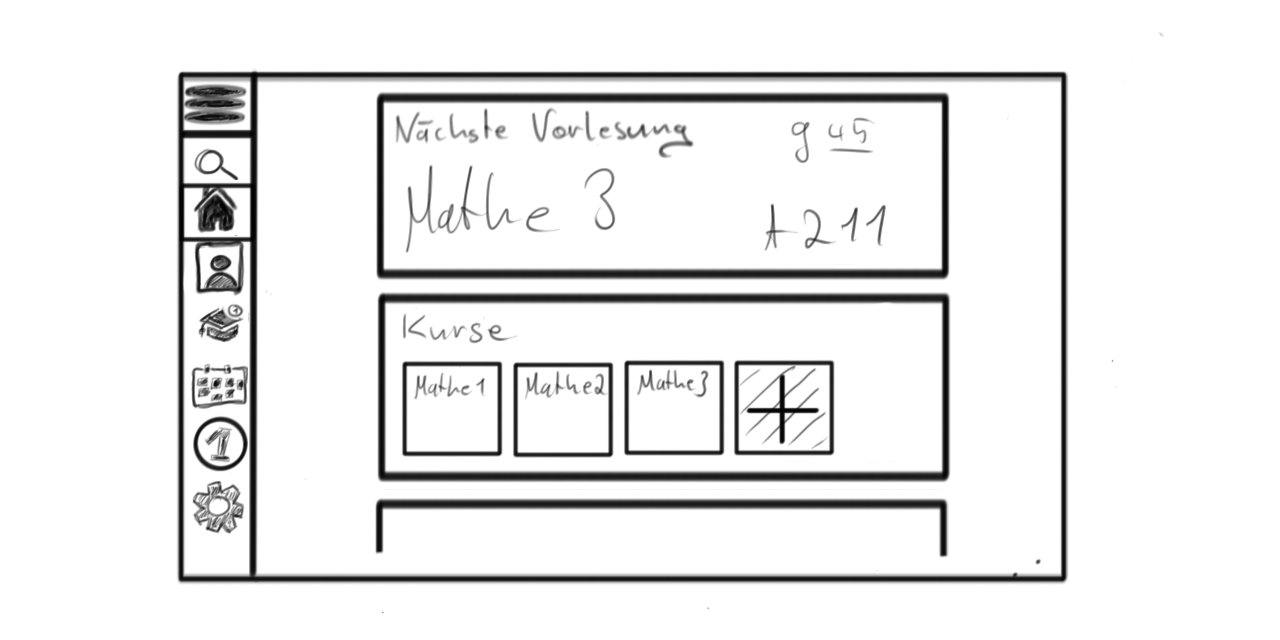 Nächste Vorlesung 9 45
Mathe 3 A211
Kurse
Mathe1 Mathe2 Mathe3
1